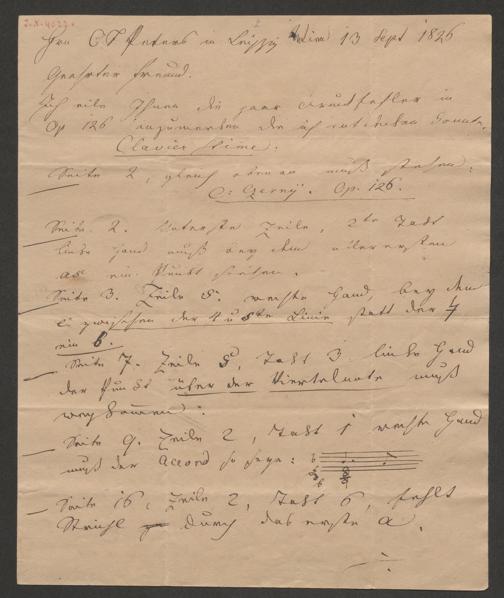 Hrn C F Peters in Leipzig Wien 13 Sept 1826
Geehrter Freund.
Ich eile Ihnen die paar Druckfehler in
Op 126 anzumerken die ich entdeckte
Clavier stime.
Seite 2, gleich oben muß stehen:
C: Czerny. Op. 126.
Seite 2. Unterste Zeile, 2te Takt
linke Hand muß bey dem allerersten
as ein Punkt stehen.
Seite 3. Zeile 5. rechte Hand, bey dem
E zwischen der 4 u 5te Linie statt der ♮
ein b.
Seite 7. Zeile 5, Takt 3 linke Hand
der Punkt über der Viertelnote muß
wegkommen.
Seite 9. Zeile 2, Takt 1 rechte Hand
muß der Accord so seyn:
Seite 16, Zeile 2, Takt 6, fehlt
Strichl durch das erste a.